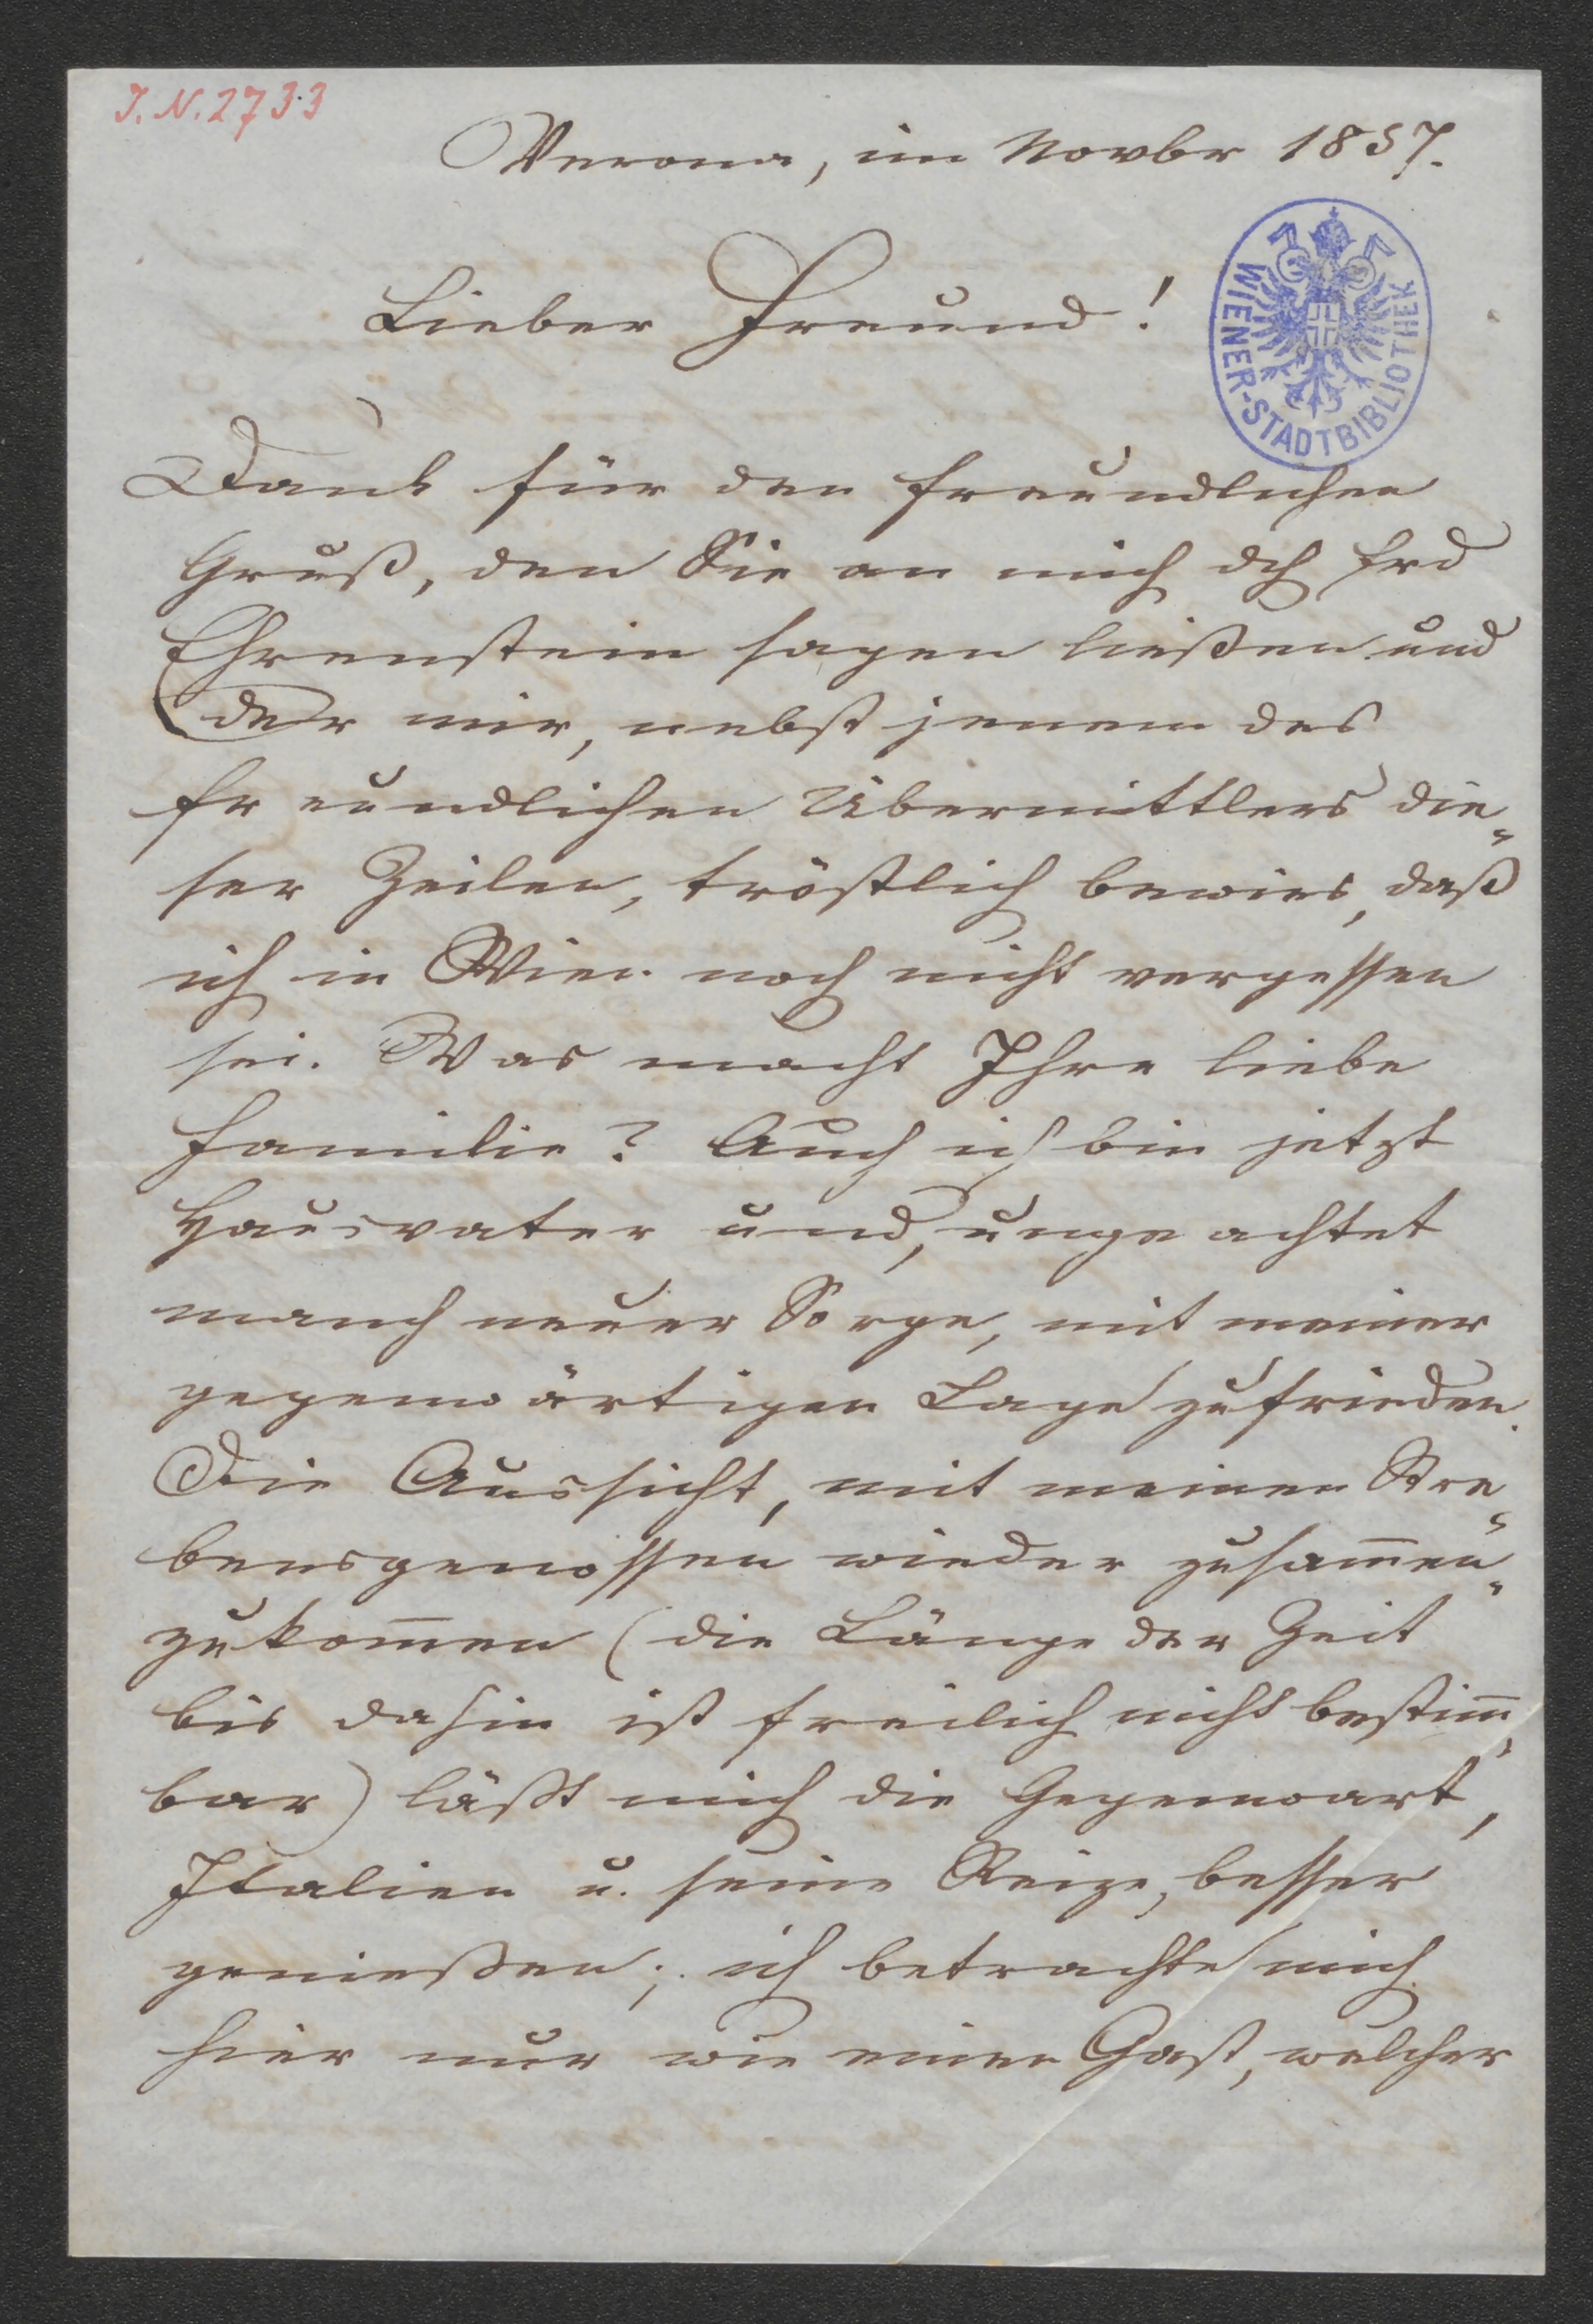 I. N. 2733
Verona, im Novbr 1857.
WIENER-STADTBIBLIOTHEK
Lieber Freund!
Dank für den freundlichen
Gruß, den Sie an mich dch Frd
Ehrenstein sagen ließen und
der mir, nebst jenem des
freundlichen Übermittlers die„
ser Zeilen, tröstlich bewies, daß
ich in Wien noch nicht vergessen
sei. Was macht Ihre liebe
Familie? Auch ich bin jetzt
Hausvater und, ungeachtet
manch neuer Sorge, mit meiner
gegenwärtigen Lage zufrieden.
Die Aussicht, mit meinen Stre„
bensgenossen wieder zusam̅en„
zukom̅en (die Länge der Zeit
bis dahin ist freilich nicht bestim̅„
bar) läßt mich die Gegenwart,
Italien u. seine Reize, besser
genießen; ich betrachte mich
hier nur wie einen Gast, welcher